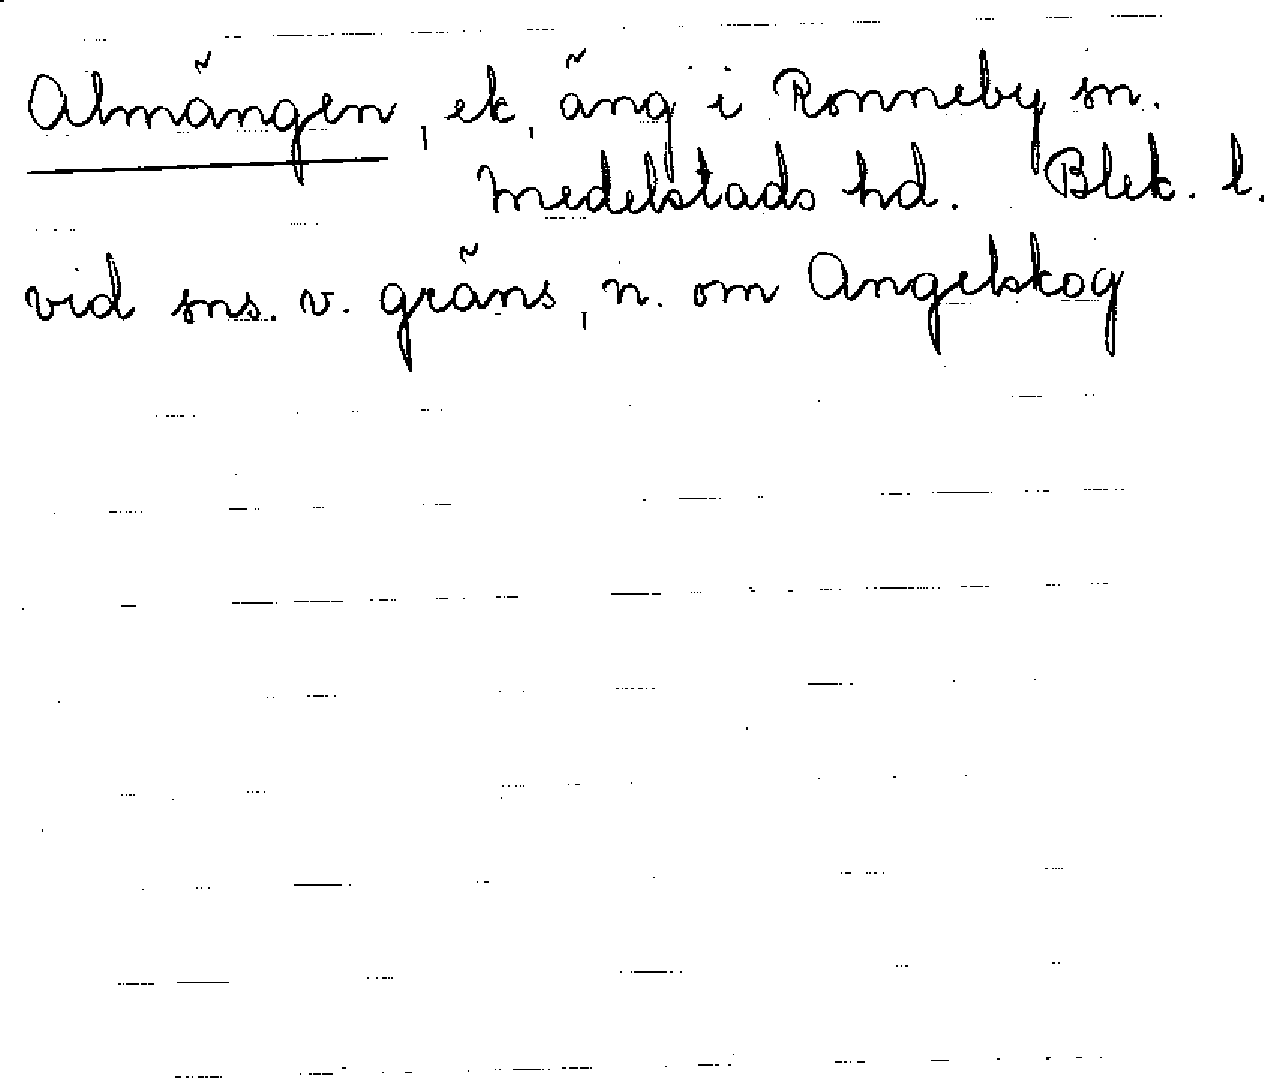 Almängen, ek. äng i Ronneby sn.
Medelstads hd. Blek. l.
vid sns. v. gräns, n. om Angelskog